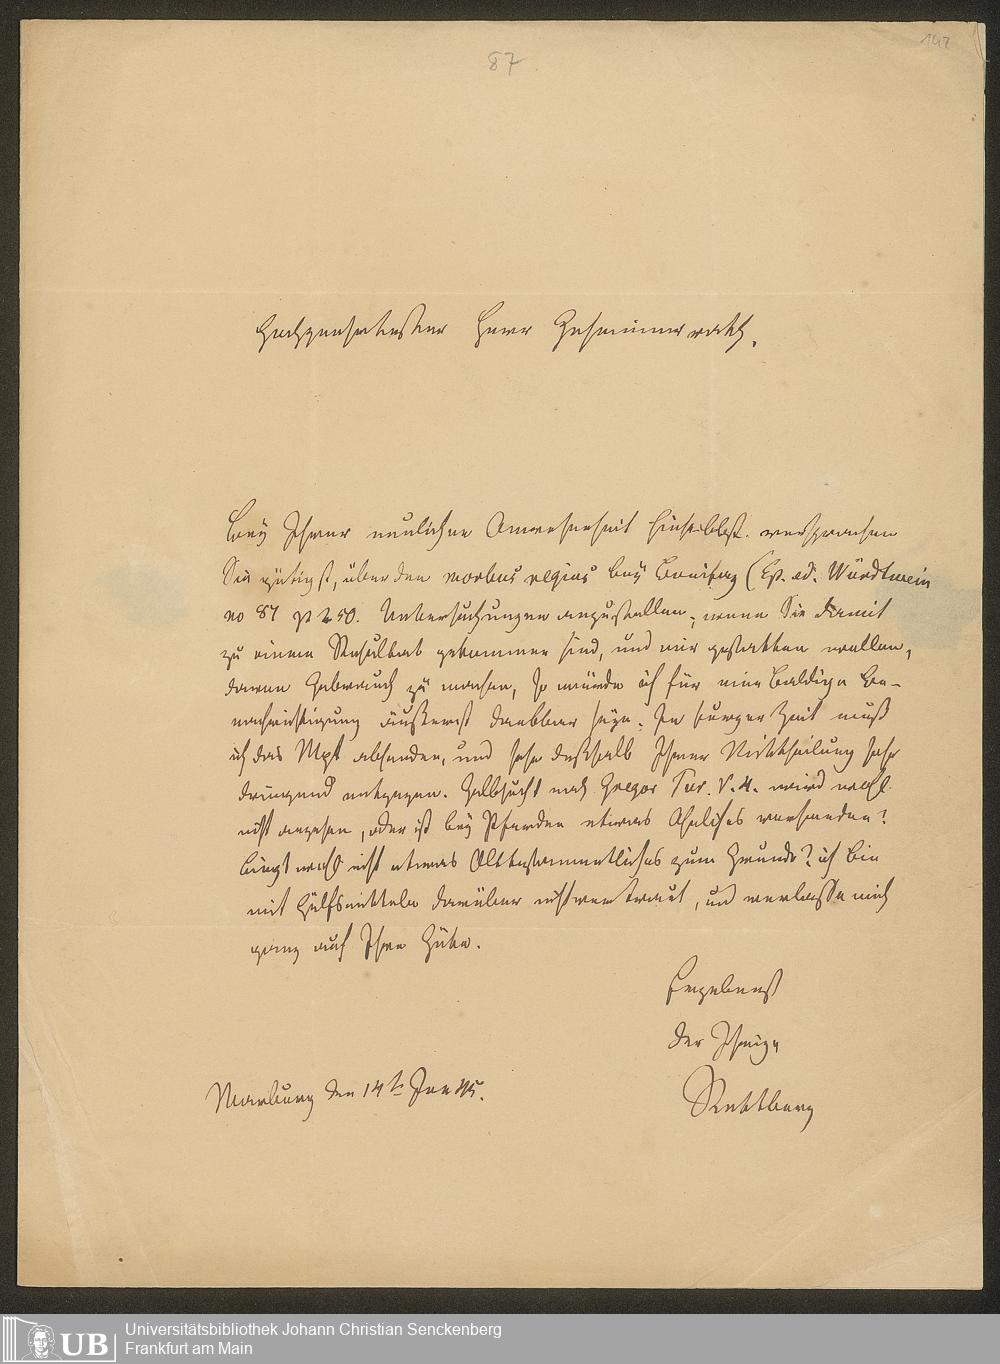 142
87
Hochzuverehrtester Herr Geheimerrath,
Bey Ihrer neulichen Anwesenheit hieselbst versprachen
Sie gütigst, über den morbus regius bey Bonifaz (Ep. ed. Würdtwein
no 87 p 250. Untersuchungen anzustellen; wenn Sie damit
zu einem Resultat gekommen sind, und mir gestatten wollen,
davon Gebrauch zu machen, so würde ich für eine baldige Be-
nachrichtigung äußerst dankbar seyn. In kurzer Zeit muß
ich das Mpt absenden, und sehe deßhalb Ihrer Mittheilung sehr
dringend entgegen. Gelbsucht nach Gregor Tur. V. 4. wird wohl
nicht angehen, oder ist bey Pferden etwas Ähnliches vorhanden?
Liegt wohl nicht etwas Alttestamentliches zum Grunde? ich bin
mit Hülfsmitteln darüber nicht vertraut, und verlasse mich
ganz auf Ihre Güte.
Ergebenst
der Ihrige
Rettberg
Marburg den 14t Jan 45.
UB
Universitätsbibliothek Johann Christian Senckenberg
Frankfurt am Main